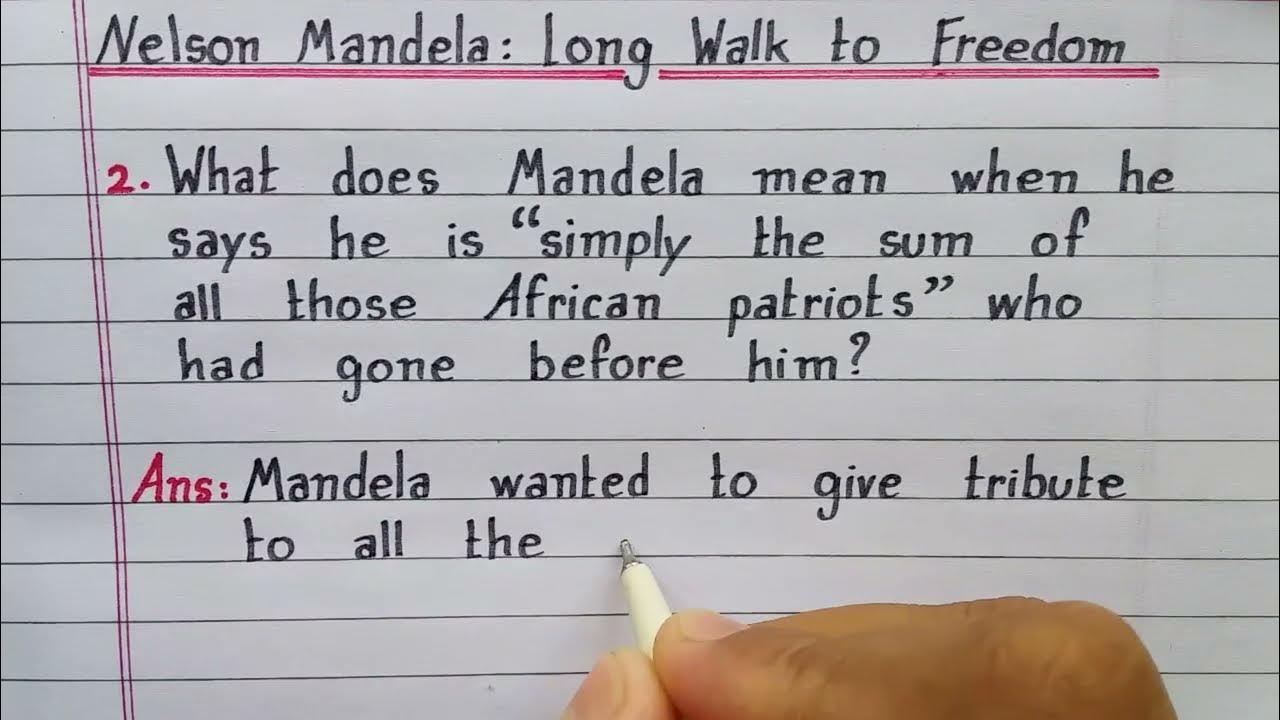 Nelson Mandela: Long Walk to Freedom
2. What does Mandela mean when he
says he is “simply the sum of
all those African patriots” who
had gone before him?
Ans: Mandela wanted to give tribute
to all the